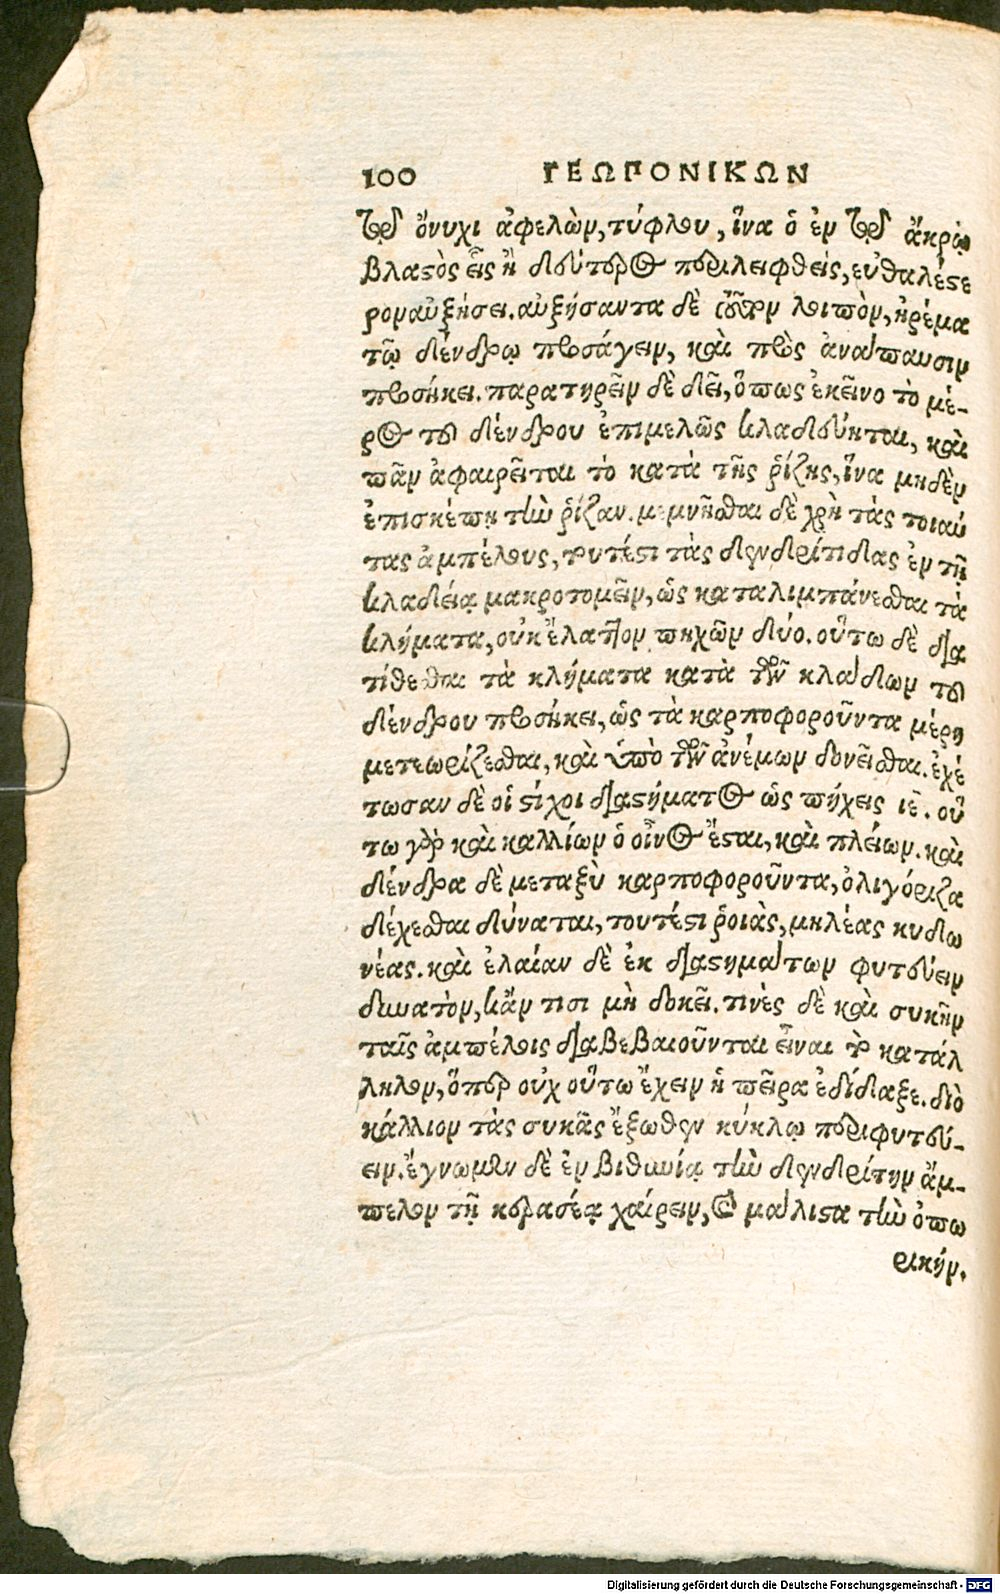 100 ΓΕΩΠΟΝΙΚΩΝ
τῷ ὄνυχι ἀφελὼν, τύφλου, ἵνα ὁ ἐν τῷ ἄκρῳ
βλαστὸς εἷς ἢ δεύτερος περιλειφθεὶς, εὐθαλέστε
ρον αὐξήσει. αὐξήσαντα δὲ οὖν λοιπὸν, ἠρέμα
τῷ δένδρῳ προσάγειν, καὶ πρὸς ἀνάπαυσιν
προσήκει. παρατηρεῖν δὲ δεῖ, ὅπως ἐκεῖνο τὸ μέ-
ρος τοῦ δένδρου ἐπιμελῶς κλαδεύηται, καὶ
πᾶν ἀφαιρεῖται τὸ κατὰ τῆς ῥίζης, ἵνα μηδὲν
ἐπισκέπῃ τὴν ῥίζαν. μεμνῆσθαι δὲ χρὴ τὰς τοιαύ
τας ἀμπέλους, τουτέστι τὰς δενδρίτιδας ἐν τῇ
κλαδείᾳ μακροτομεῖν, ὡς καταλιμπάνεσθαι τὰ
κλήματα, οὐκ ἔλαττον πηχῶν δύο. οὕτω δὲ δια
τίθεσθαι τὰ κλήματα κατὰ τῶν κλάδων τοῦ
δένδρου προσήκει, ὡς τὰ καρποφοροῦντα μέρη
μετεωρίζεσθαι, καὶ ὑπὸ τῶν ἀνέμων δονεῖσθαι. ἐχέ
τωσαν δὲ οἱ στίχοι διαστήματος ὡς πήχεις ιε. οὕ
τω γὰρ καὶ καλλίων ὁ οἶνος ἔσται, καὶ πλείων. καὶ
δένδρα δὲ μεταξὺ καρποφοροῦντα, ὀλιγόριζα
δέχεσθαι δύναται, τουτέστι ῥοιὰς, μηλέας κυδω
νέας. καὶ ἐλαίαν δὲ ἐκ διαστημάτων φυτεύειν
δυνατὸν, κἄν τισι μὴ δοκεῖ. τινὲς δὲ καὶ συκῆν
ταῖς ἀμπέλοις διαβεβαιοῦνται εἶναι κατάλ
ληλον, ὅπερ οὐχ οὕτω ἔχειν ἡ πεῖρα ἐδίδαξε. διὸ
κάλλιον τὰς συκᾶς ἔξωθεν κύκλῳ περιφυτεύ-
ειν. ἔγνωμεν δὲ ἐν βιθυνίᾳ τὴν δενδρίτην ἄμ-
πελον τῇ κερασέᾳ χαίρειν, καὶ μάλιστα τὴν ὀπω
ρικήν.
Digitalisierung gefördert durch die Deutsche Forschungsgemeinschaft - DFG